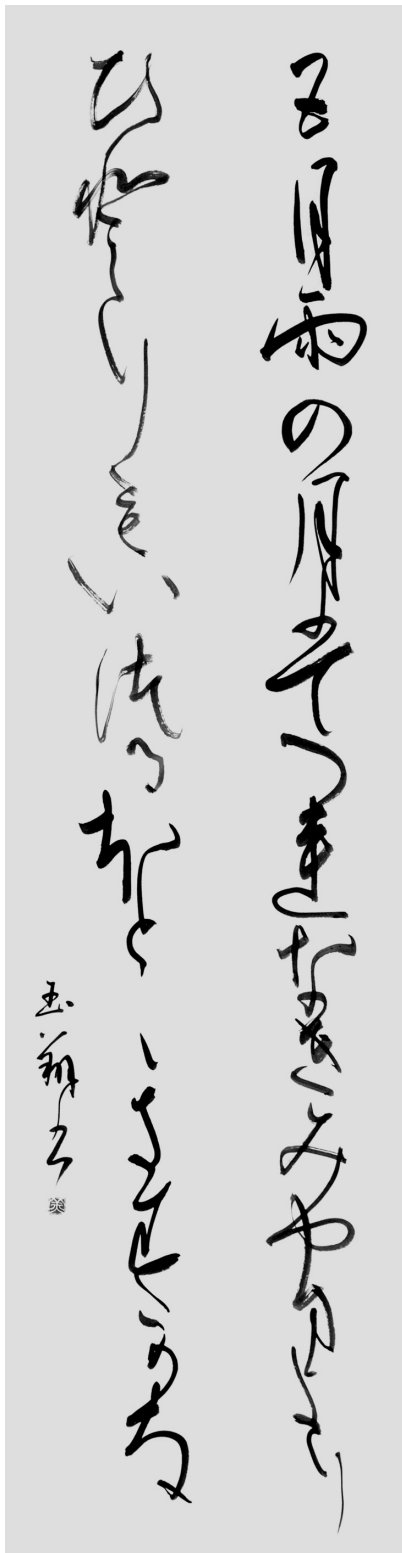 五月雨の月はつれなきみやまより
ひとりもいつるほとゝきすかな
玉翔書